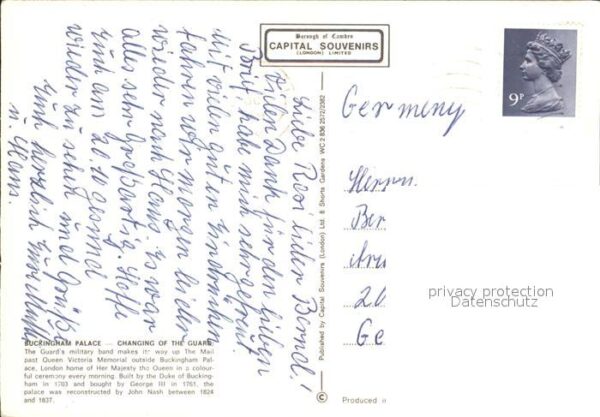 Borough of Camden
CAPITAL SOUVENIRS
(LONDON) LIMITED
9P
Germeny
Herrn
Ber
2
Ge
Liebe Rosi lieber Bernd!
Vielen Dank für den lieben
Brief habe mich sehr gefreut.
Mit vielen guten Eindrücken
fahren wir morgen leider
wieder nach Haus. Es war
alles sehr Großartig. Hoffe
Euch am 20. gesund
wieder zu sehen und Grüße
Euch herzlich Eure
u. Hans.
Published by Capital Souvenirs (London) Ltd. 8 Shorts Gardens WC2 836 2572/2382
privacy protection
Datenschutz
BUCKINGHAM PALACE — CHANGING OF THE GUARD.
The Guard's military band makes its way up The Mall
past Queen Victoria Memorial outside Buckingham Pal-
ace, London home of Her Majesty the Queen in a colour-
ful ceremony every morning. Built by the Duke of Bucking-
ham in 1703 and bought by George III in 1761, the
palace was reconstructed by John Nash between 1824
and 1837.
©
Produced i